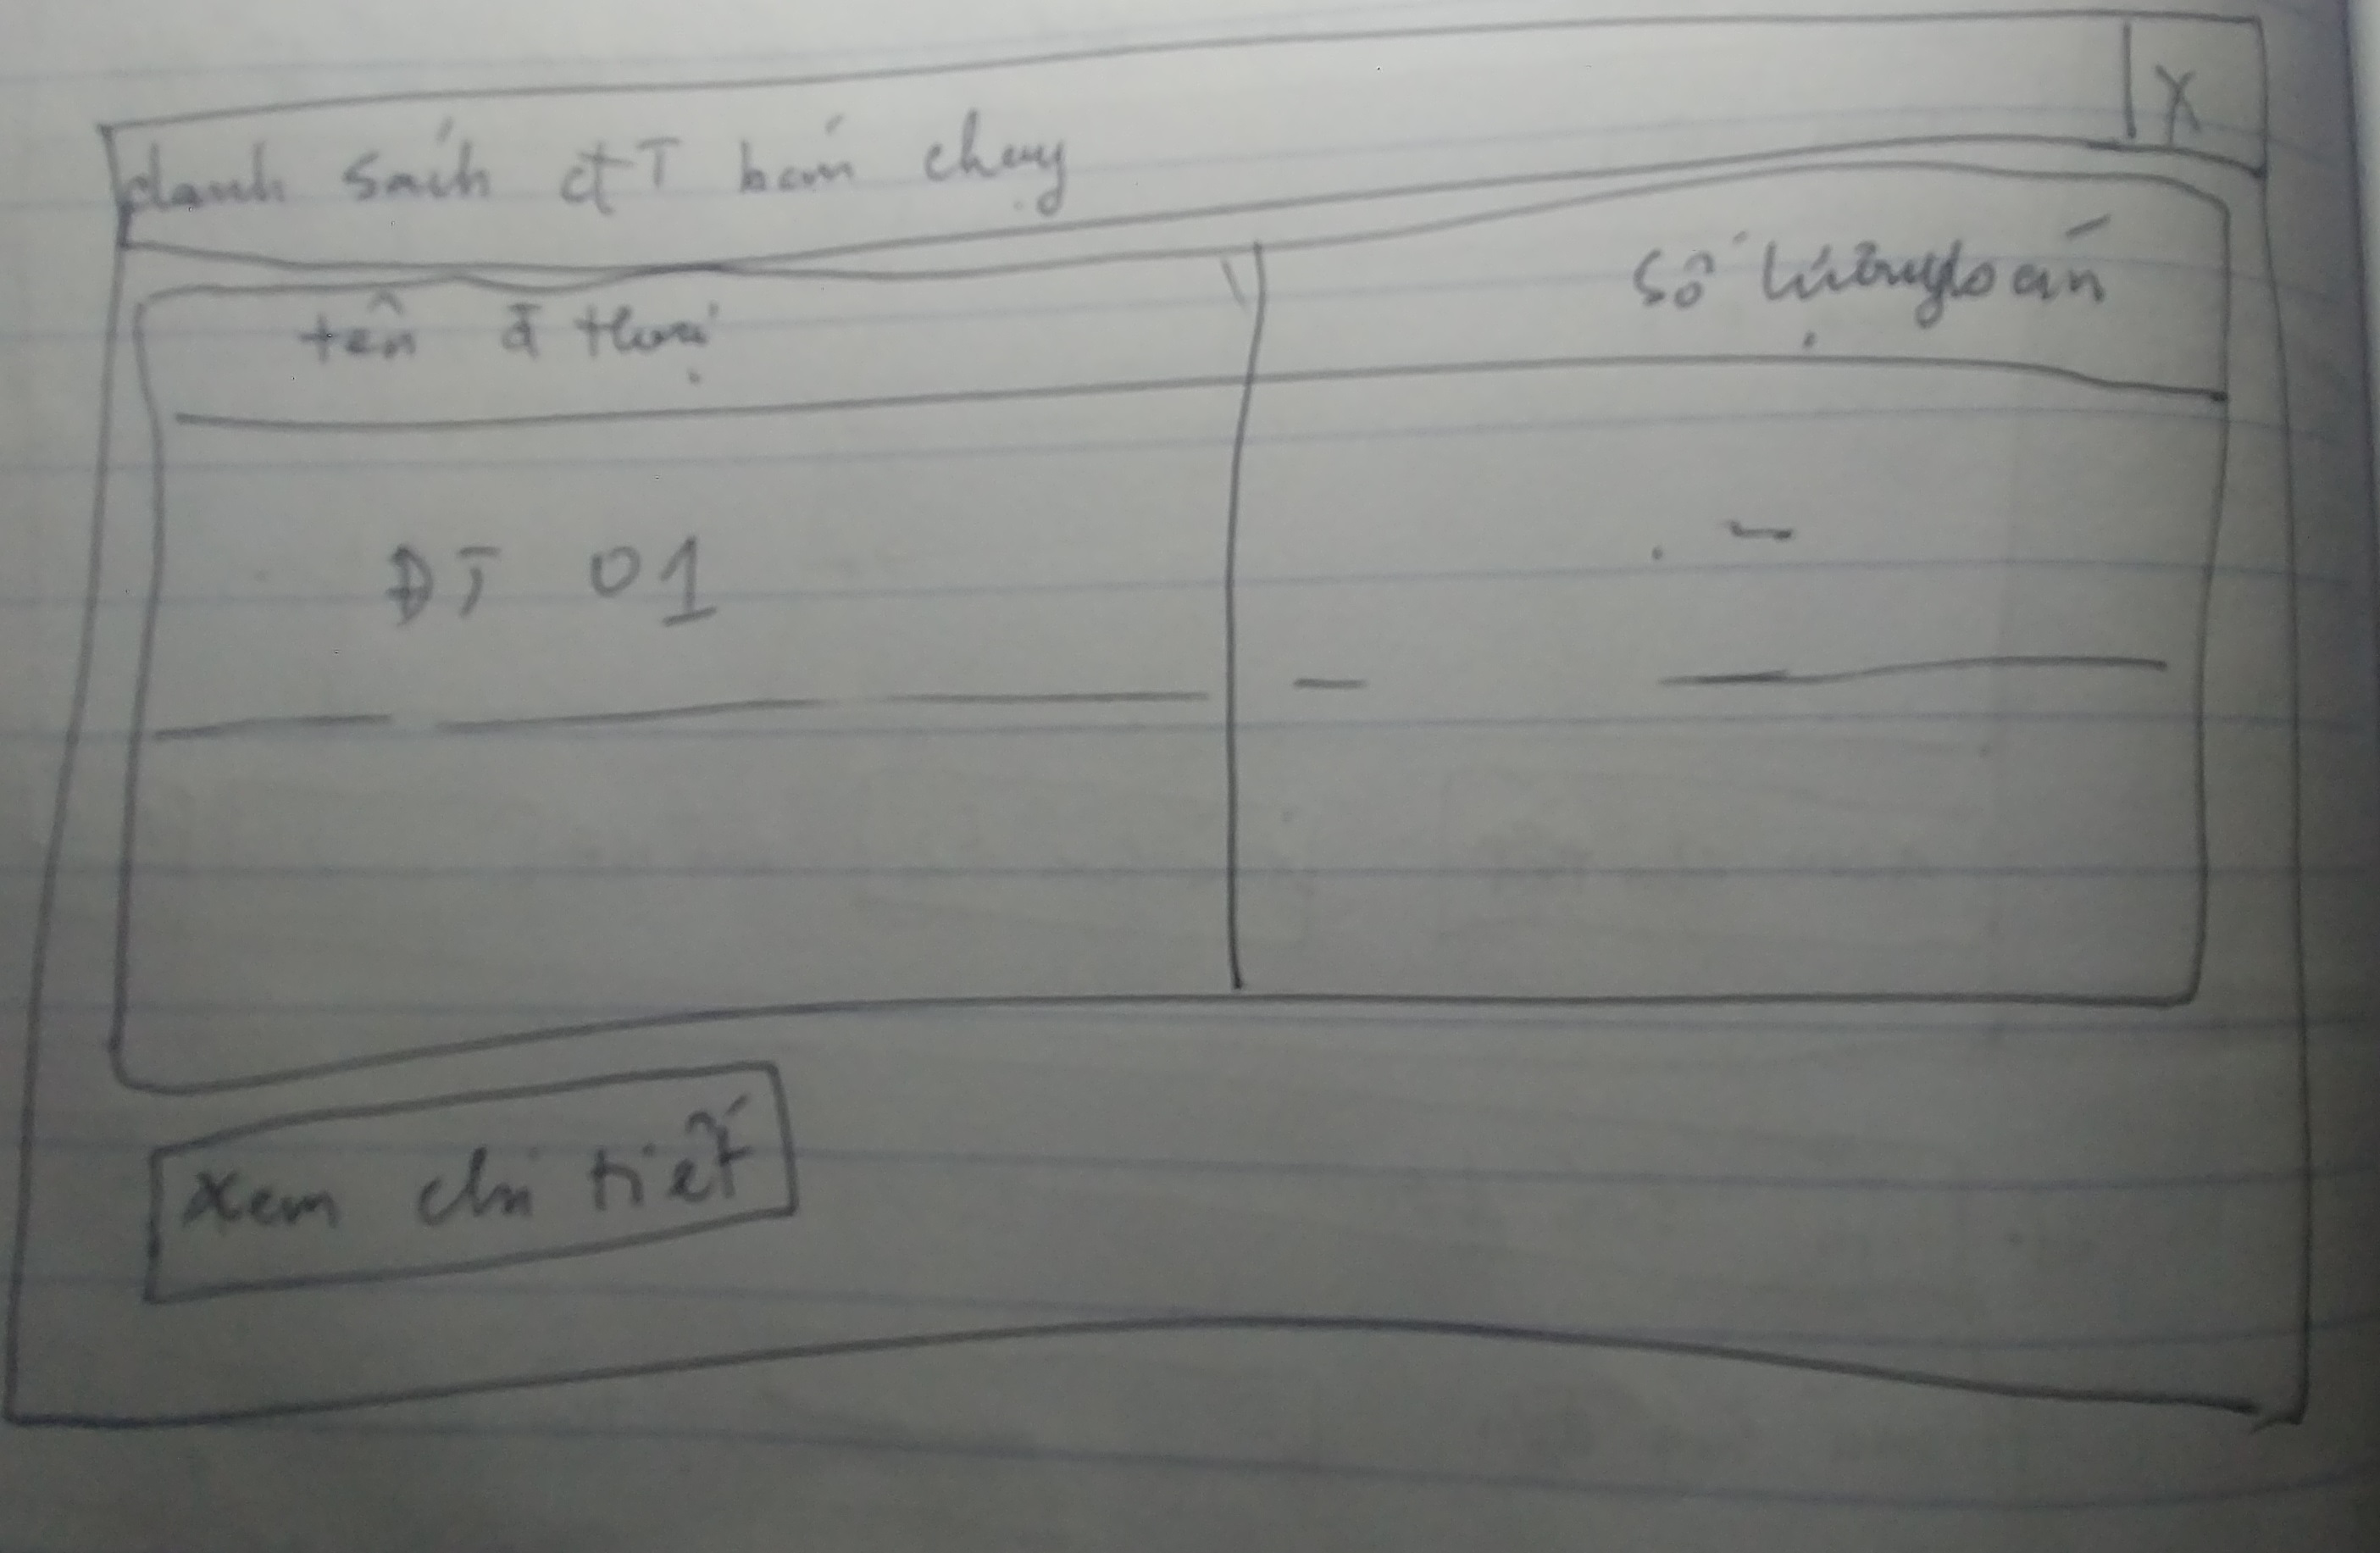 danh sách đT bán chạy
X
tên đ thoại
số lượng bán
ĐT 01
Xem chi tiết